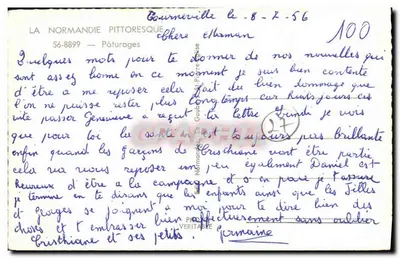 Tourneville le 8-7-56
100
LA NORMANDIE PITTORESQUE
56-8899 — Pâturages
Chère Maman
Quelques mots pour te donner de nos nouvelles qui
sont assez bonne en ce moment je suis bien contente
d'être a me reposer cela fait du bien dommage que
l'on ne puisse rester plus longtemps car huit jours ces
vite passer Geneviève a reçut la lettre lundi je vois
que pour toi la santé n'est toujours pas brillante
enfin quand les garçons de Cristhiane vont être partie
cela va vous reposer un peu également Daniel est
heureux d'être a la campagne, et s'en paye je t'assure
je termine en te disant que les enfants ainsi que les Filles
et Georges se joignent a moi pour te dire bien des
choses et t'embrasser bien affectueusement sans oublier
VÉRITABLE
Cristhiane et ses petits. Germaine
27